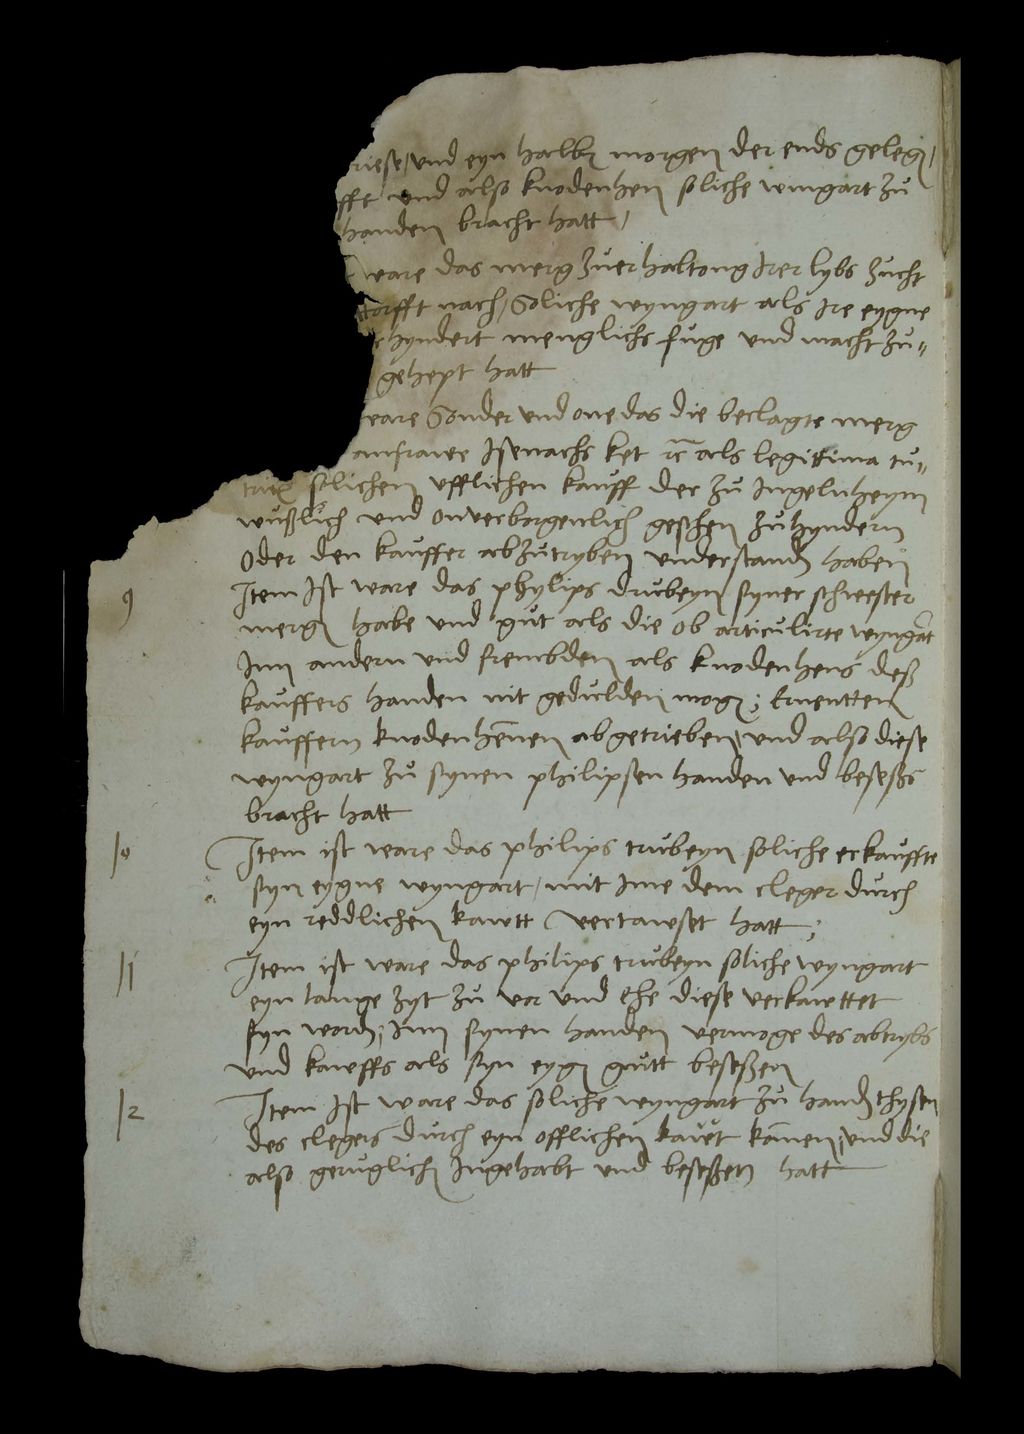 riese / und eyn halbn morgen der ends gelegen /
fft und also knodenhen soliche wingart zu
handen bracht hatt /
ware das merg zuerhaltong Irer lybs zucht
torfft nach / Soliche wyngart als Ire eygne
hyndert menglichs fuge und macht zu=
gehept hatt
ware Sonder und one das die beclagte merg
anfrawe Isenachs ket rc als legittima tu=
trix solichen ufflichen kauff der zu Ingelnheym
wußlich und onverborgenlich geschen zuhyndern
Oder den kauffer abzutryben understanden haben
9 Item Ist ware das phylips drubeyn syner schwester
mergn habe und gut als die ob articulirte wyngart
Inn andern und frembden als knodenhens deß
kauffers handen nit gedulden mogen; Ernentten
kauffern knodenhennen abgetrieben, und also diese
wyngart zu synen philipsen handen und beseßs
bracht hatt
10 Item ist ware das philips trubeyn soliche erkauffte
syn eygne wyngart, mit Ime dem cleger durch
eyn reddlichen kawtt vertawset hatt;
11 Item ist ware das philips trubeyn soliche wyngart
eyn lange zyt zu vor und Ehe diese verkawttet
syn worden; Inn synen handen vermoge des abtrybs
und kawffs als syn eygen gutt beseßen
12 Item Ist ware das soliche wyngart zu handen thysen
des clegers durch eyn offlichen kaut komen, und die
also geruglich Ingehabt und beseßen hatt